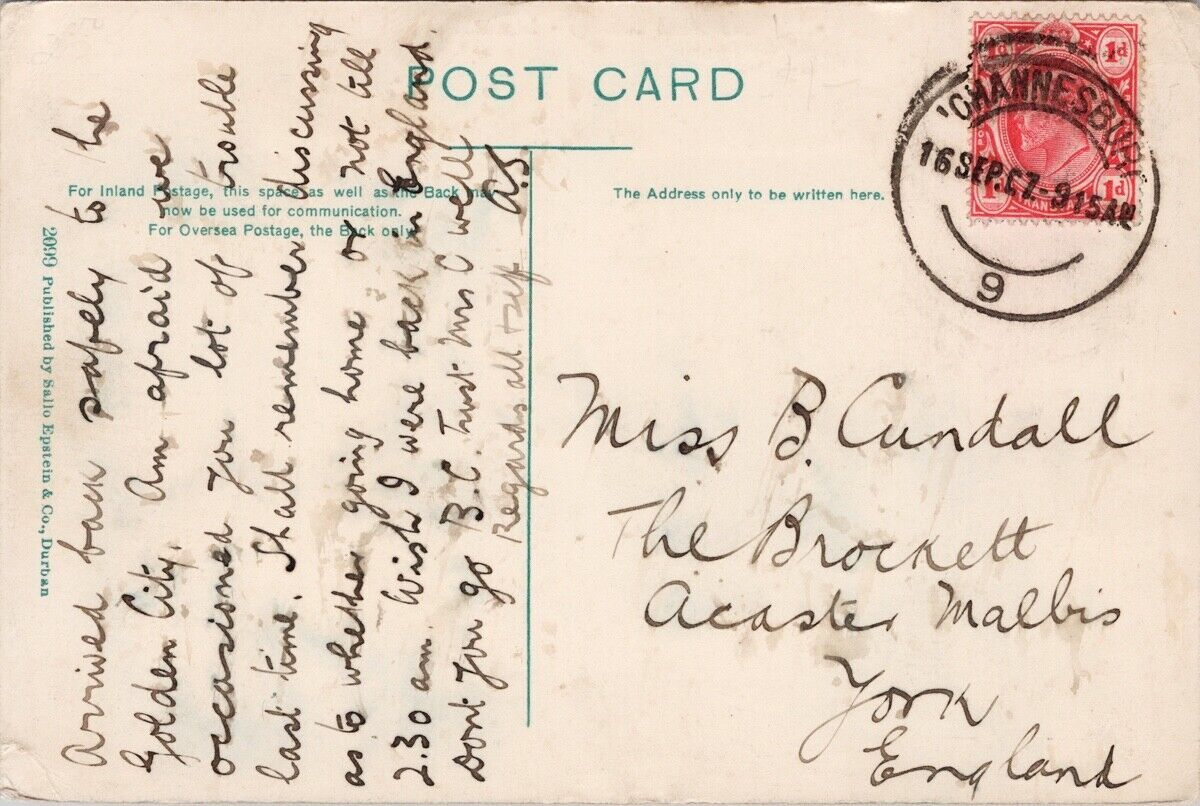 POST CARD
For Inland Postage, this space as well as the Back may
now be used for communication.
For Oversea Postage, the Back only.
The Address only to be written here.
2099 Published by Sallo Epstein & Co., Durban
1d 1d
JOHANNESBURG
16 SEP. 07 - 9 15 AM
9
1d 1d
Arrived back safely to the
Golden City. Am afraid we
occasioned you lot of trouble
last time. Shall remember discussing
as to whether going home or not till
2.30 am. Wish I were back in England.
Dont you go B.C. Trust Mrs C well
Regards all &self A.S
Miss B. Cundall
The Brockett
Acaster Malbis
York
England